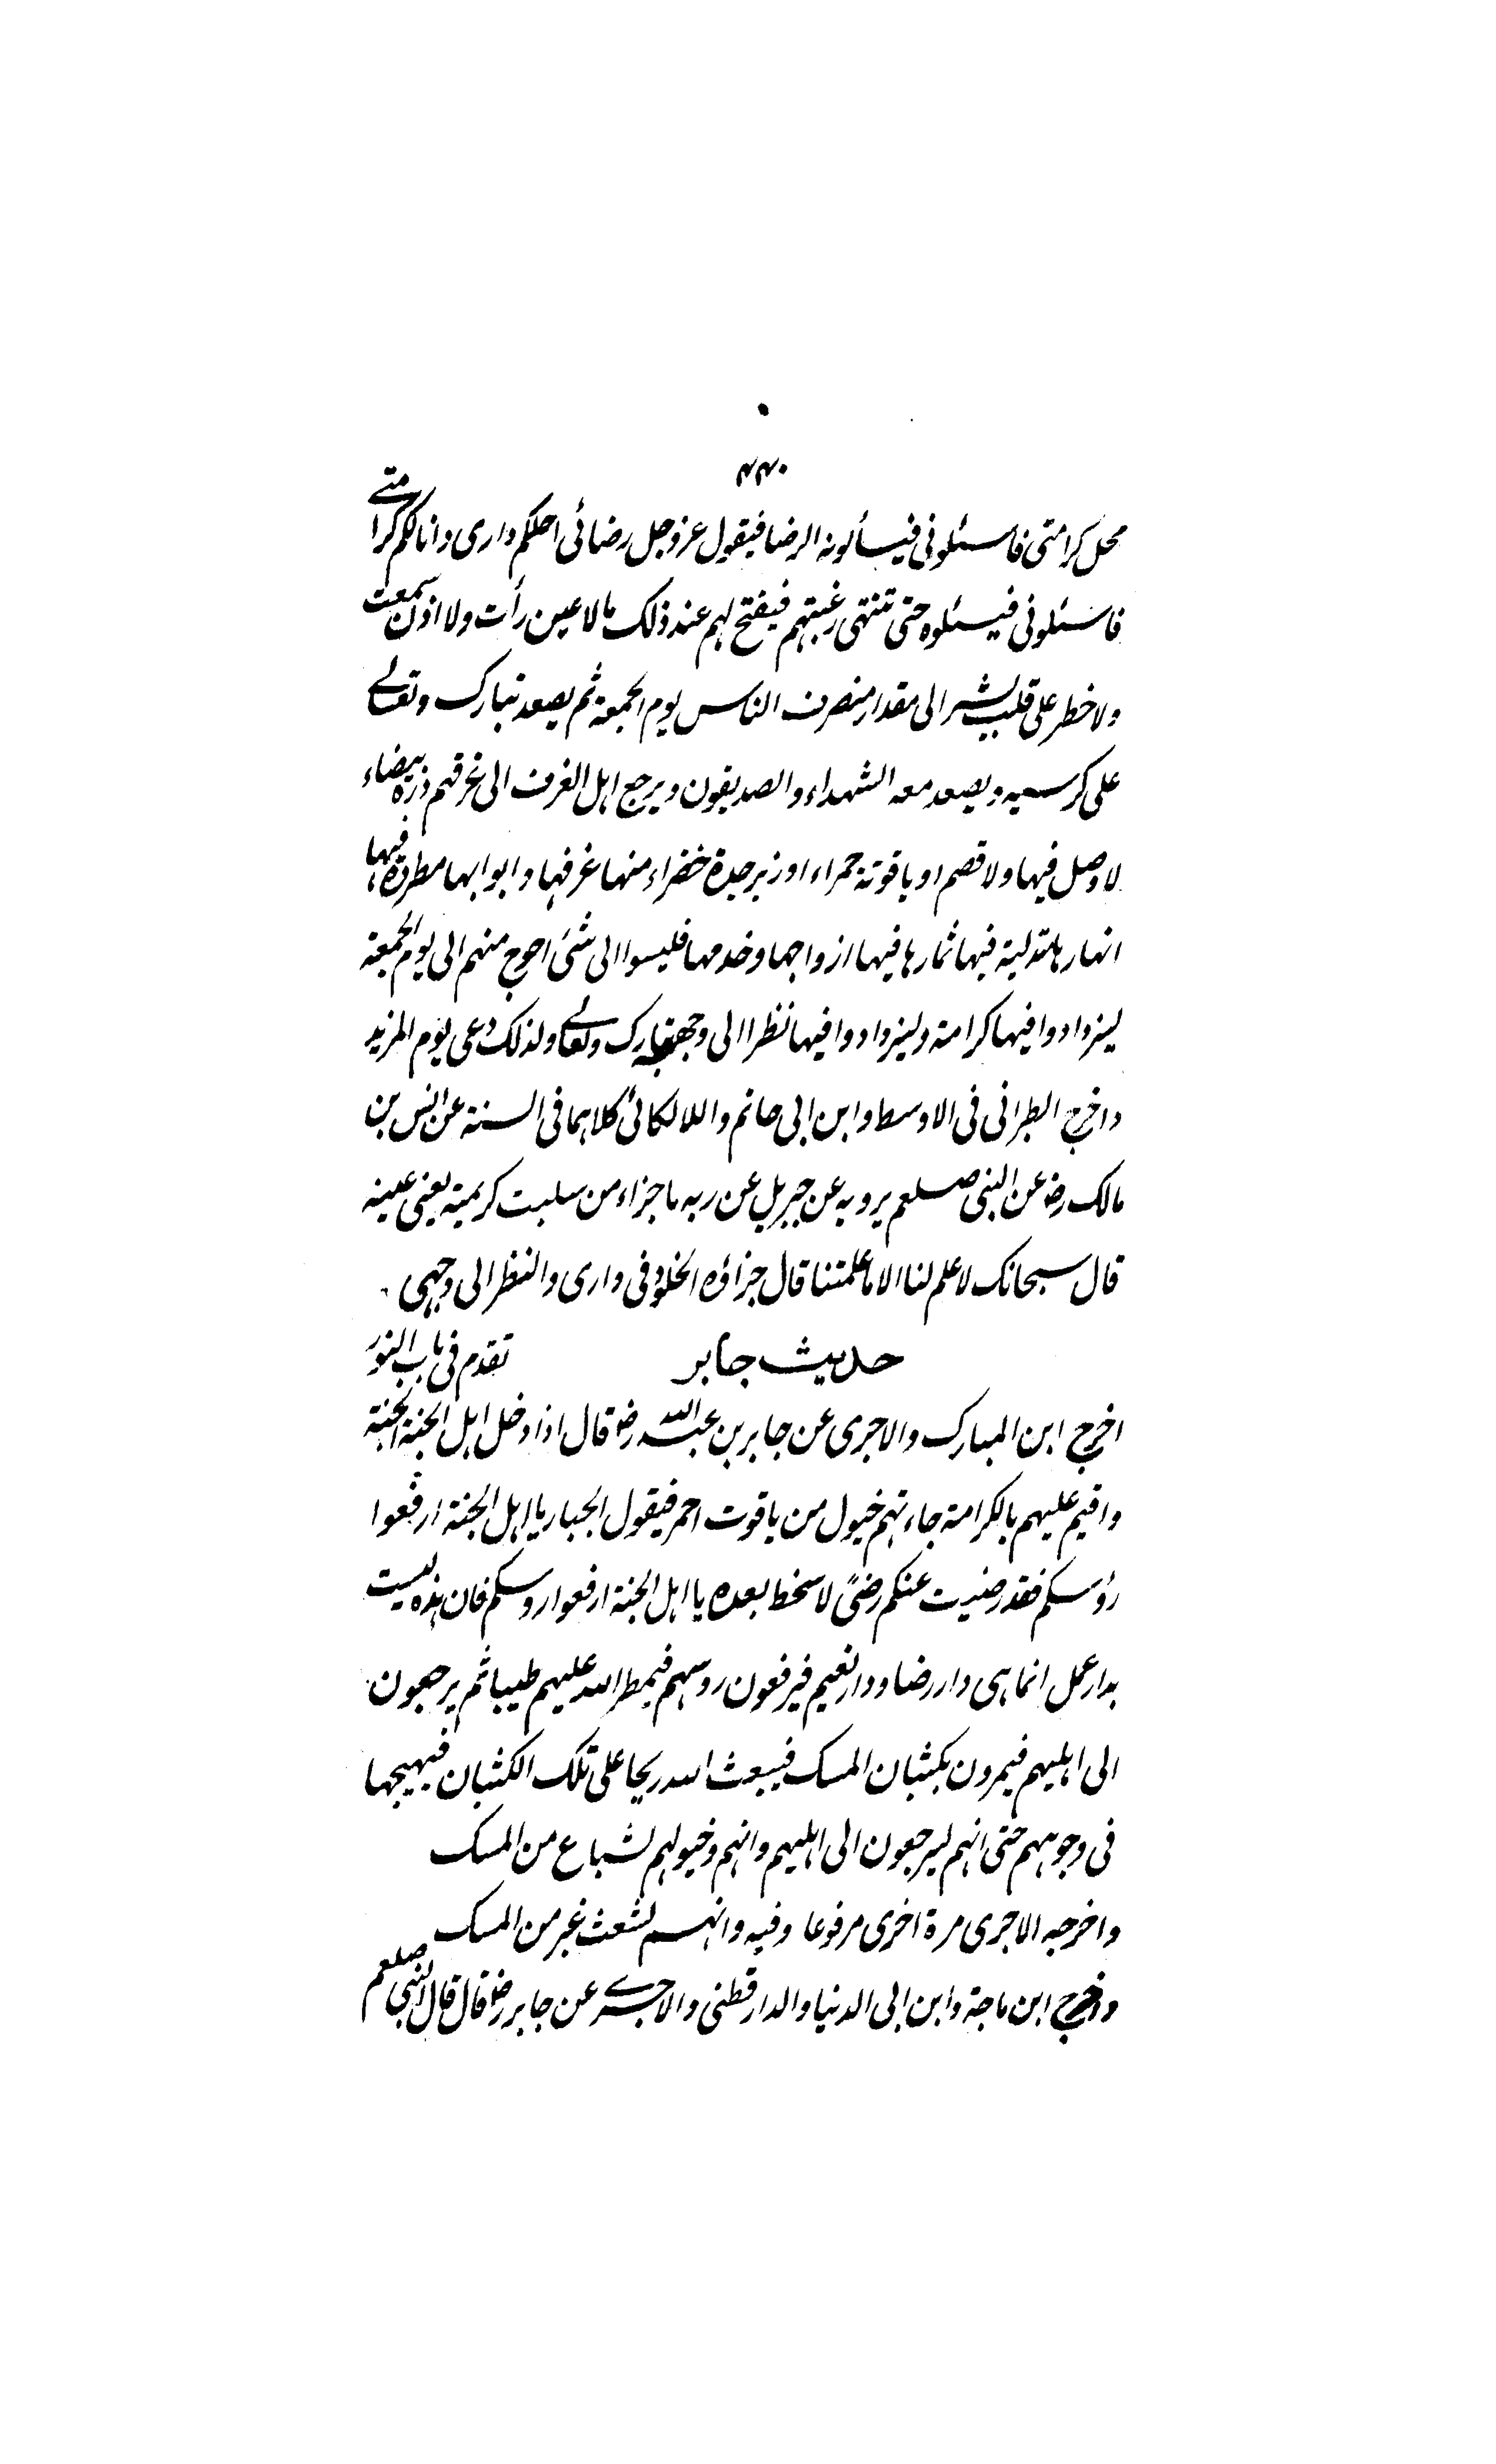 ۴۴۰
محل كرامتى فاسئلونى فيسألونه الرضا فيقول عزوجل رضائى احلكم دارى وانالكم كرامتے
فاسئلونى فيسئلوه حتى تنتهى رغبتهم فيفتح لهم عند ذلك مالا عين رأت ولا اذن سمعت
ولا خطر على قلب بشر الى مقدار منصرف الناس يوم الجمعة ثم يصعد تبارك وتعالے
على كرسيه ويصعد معه الشهداء والصديقون ويرجع اهل الغرف الى غرفهم درة بيضاء
لا وصل فيها ولا قصم او ياقوتة حمراء او زبرجدة خضراء منها غرفها وابوابها مطردة فيها
انهارها متدلية فيها ثمارها فيها ازواجها وخدمها فليسوا الى شئ احوج منهم الى يوم الجمعة
ليزدادوا فيها كرامة وليزدادوا فيها نظرا الى وجهه تبارك وتعالے ولذلك دعى يوم المزيد
واخرج الطبرانى فى الاوسط وابن ابى حاتم واللالكائى كلاهما فى السنة عن انس بن
مالك رضـ عن النبى صلعم يرويه عن جبريل عن ربه ما جزاء من سلبت كريمتيه يعنى عينيه
قال سبحانك لا علم لنا الا ما علمتنا قال جزاؤه الخلود فى دارى والنظر الى وجهى
حديث جابر تقدم فى باب النور
اخرج ابن المبارك والاجرى عن جابر بن عبد الله رضـ قال اذا دخل اهل الجنة الجنة
واقيم عليهم بالكرامة جاءتهم خيول من ياقوت احمر فيقول الجبار يا اهل الجنة ارفعوا
رؤسكم فقد رضيت عنكم رضىً لا سخط بعده يا اهل الجنة ارفعوا روسكم فان هذه ليست
بدار عمل انما هى دار رضا ودار نعيم فيرفعون روسهم فيمطر الله عليهم طيبا ثم يرجعون
الى اهليهم فيمرون بكثبان المسك فيبعث الله ريحا على تلك الكثبان فيهيجها
فى وجوههم حتى انهم ليرجعون الى اهليهم وانهم وخيولهم لشباع من المسك
واخرجه الاجرى مرة اخرى مرفوعا وفيه وانهم لشعث غبر من المسك
واخرج ابن ماجة وابن ابى الدنيا والدارقطنى والاجرے عن جابر رضـ قال قال النبى صلعم